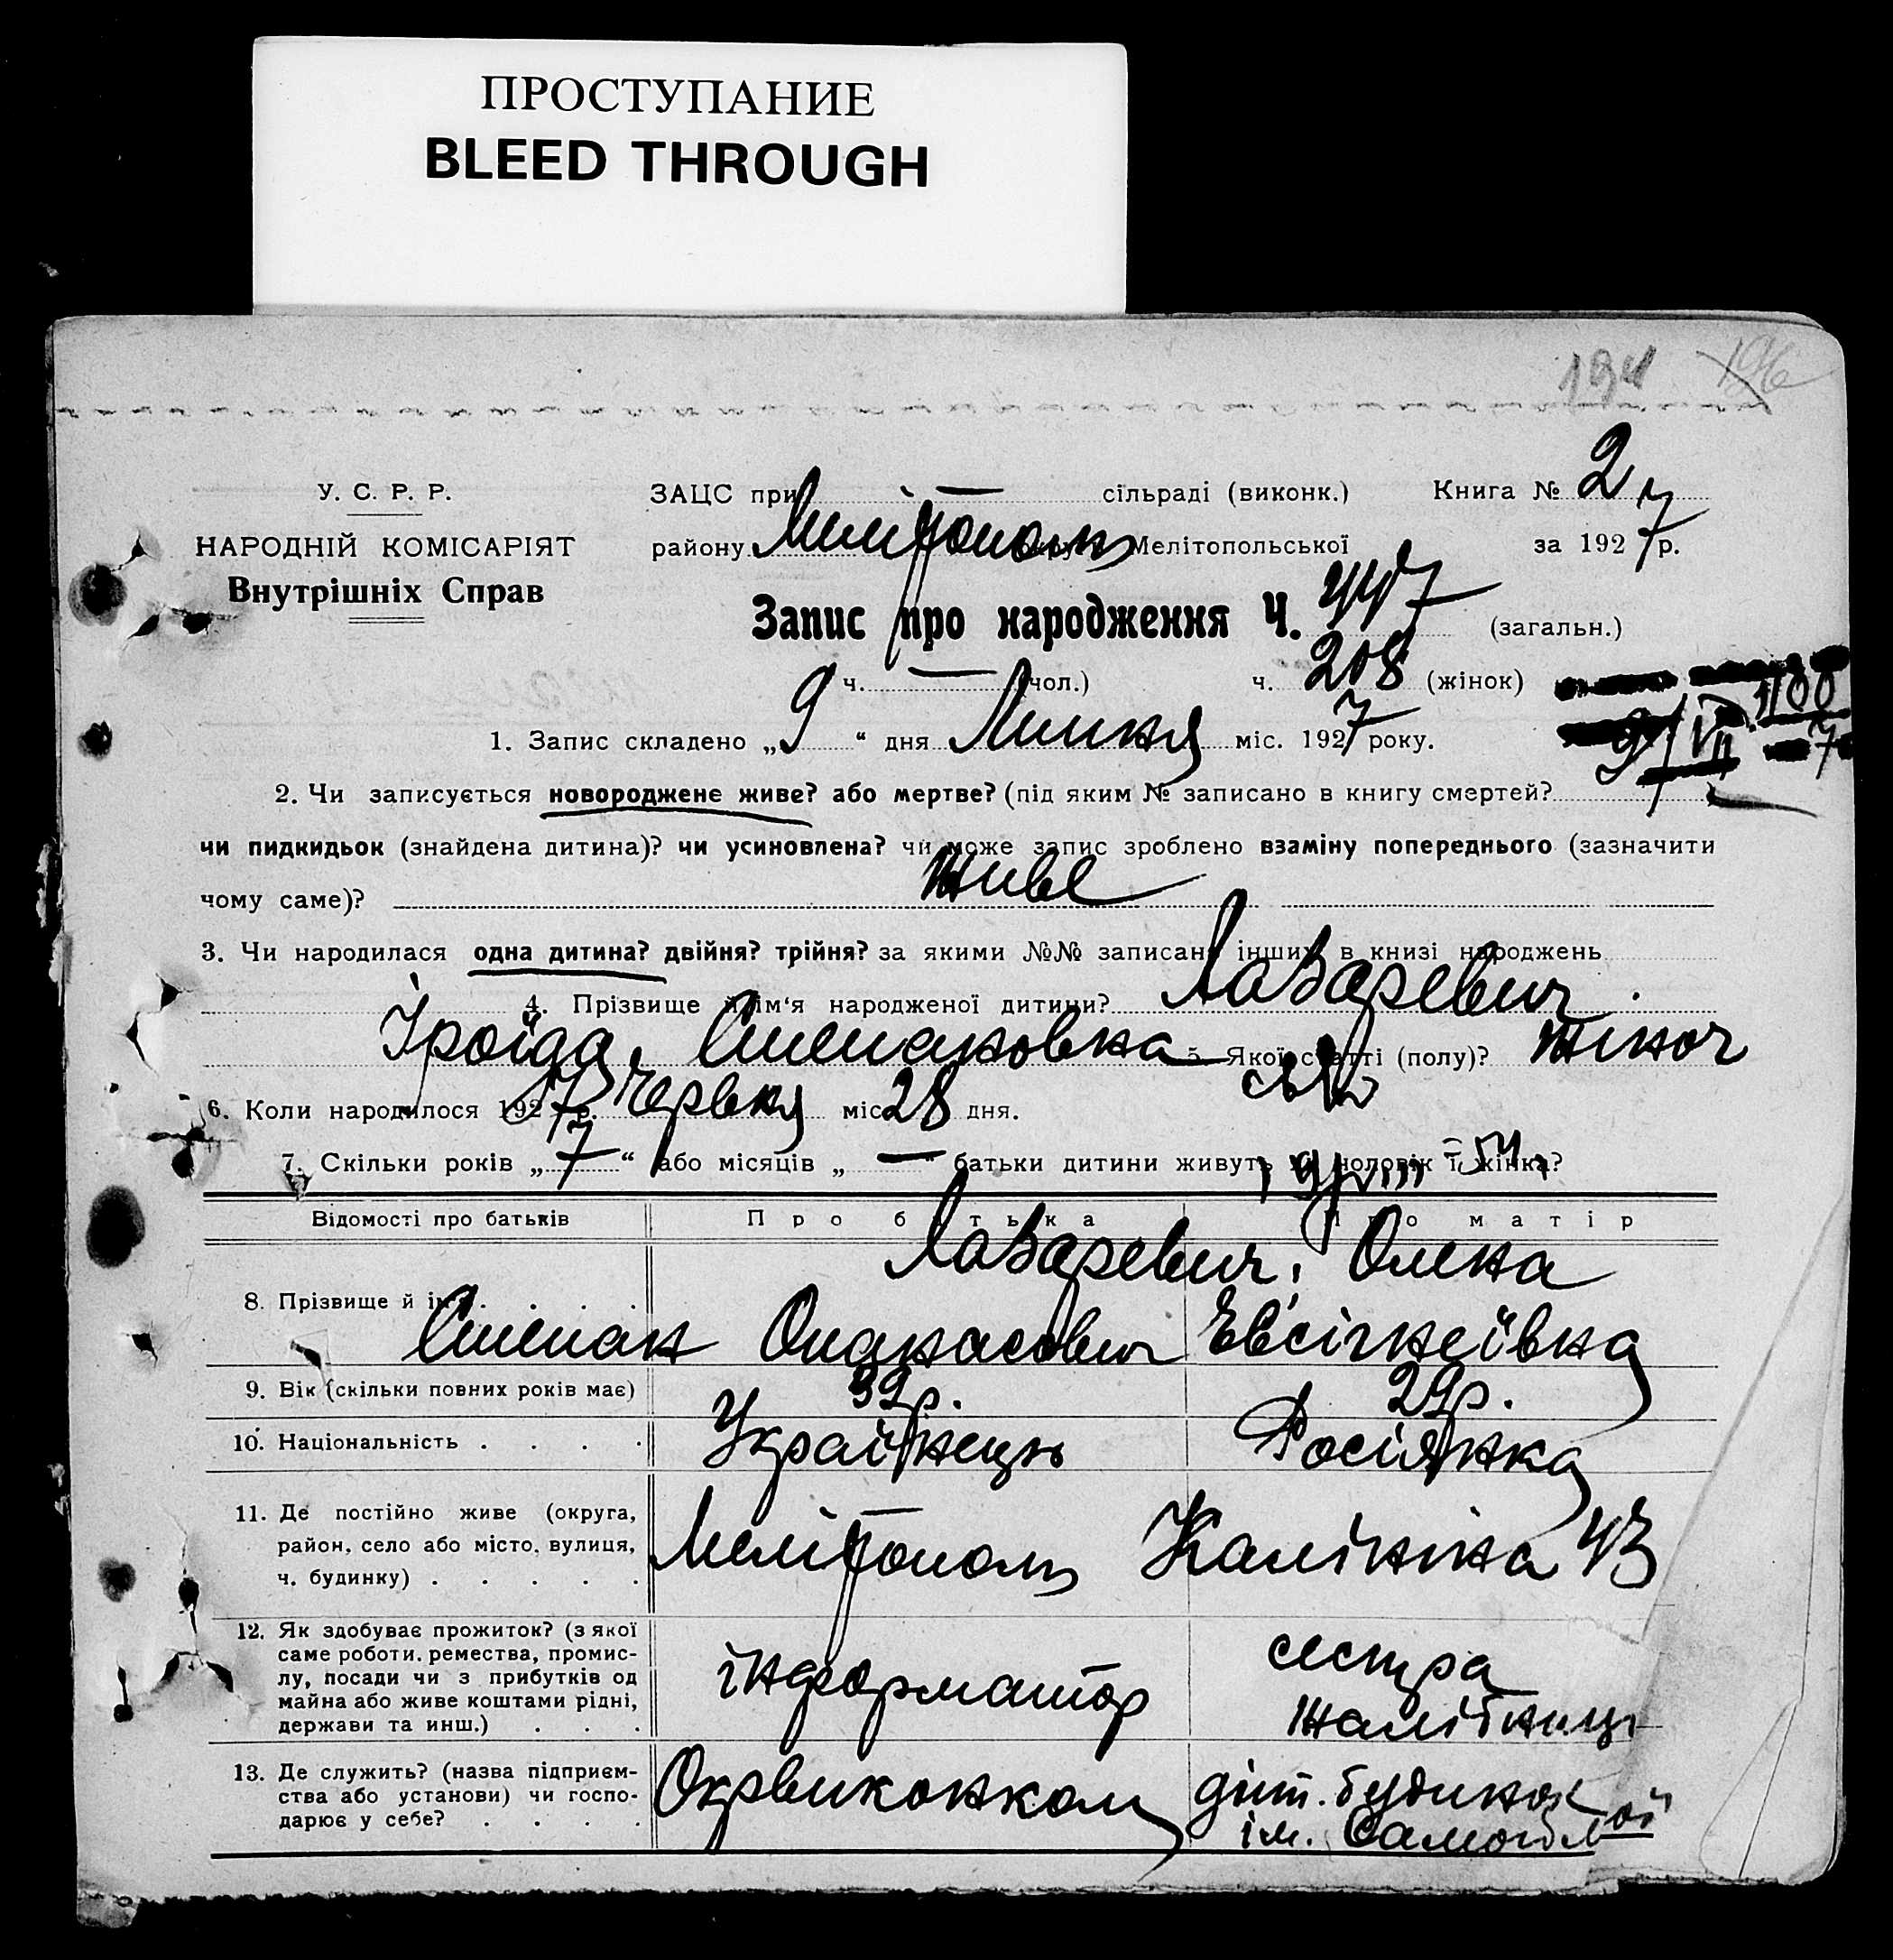 ПРОСТУПАНИЕ
BLEED THROUGH
194 196
У. С. Р. Р. ЗАЦС при — сільраді (виконк.) Книга № 2
НАРОДНІЙ КОМІСАРІЯТ району Мелітополь Мелітопольської за 1927 р.
Внутрішніх Справ
Запис про народження Ч. 447 (загальн.)
ч. — (чол.) ч. 208 (жінок)
1. Запис складено „9“ дня Липня міс. 1927 року.
2. Чи записується новороджене живе? або мертве? (під яким № записано в книгу смертей?
чи пидкидьок (знайдена дитина)? чи усиновлена? чи може запис зроблено взаміну попереднього (зазначити
чому саме)? живе
3. Чи народилася одна дитина? двійня? трійня? за якими №№ записано інших в книзі народжень
4. Прізвище й ім‘я народженої дитини? Лазаревич
Іроїда Степановна 5. Якої статті (полу)? жіноч
6. Коли народилося 1927 р. Червня міс. 28 дня.
7. Скільки років „7“ або місяців „—“ батьки дитини живуть як чоловік і жінка?
Відомості про батьків Про батька Про матір
Лазаревич, Олена
8. Прізвище й ім‘я . . . .
Степан Опанасович Евсігнеївна
9. Вік (скільки повних років має) 39р. 29р.
10. Національність . . . . Українець Росіянка
11. Де постійно живе (округа,
район, село або місто, вулиця,
ч. будинку) . . . . . Мелітополь Калініна 43
12. Як здобуває прожиток? (з якої
саме роботи, ремества, промис-
лу, посади чи з прибутків од
майна або живе коштами рідні,
держави та инш.) . . . інформатор сестра
жалібниці
13. Де служить? (назва підприєм-
ства або установи) чи госпо-
дарює у себе? . . . . Окрвиконком дит. будинок
ім.